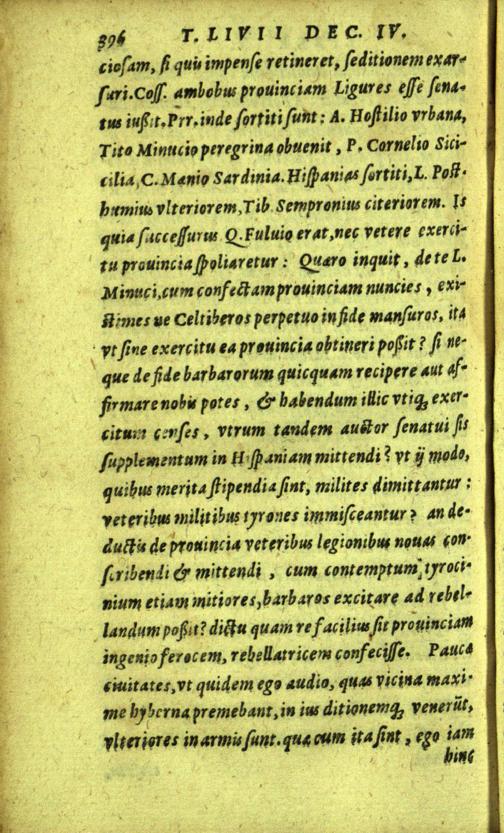 396 T. LIVII DEC. IV.
ciosam, si quis impense retineret, seditionem exar-
suri. Coss. ambobus prouinciam Ligures esse sena-
tus iußit. Prr. inde sortiti sunt: A. Hostilio vrbana,
Tito Minucio peregrina obuenit, P. Cornelio Sici-
cilia, C. Mænio Sardinia. Hispanias sortiti, L. Post-
humius vlteriorem, Tib. Sempronius citeriorem. Is
quia successurus Q. Fuluio erat, nec vetere exerci-
tu prouincia spoliaretur: Quæro inquit, de te L.
Minuci, cum confectam prouinciam nuncies, exi-
stimes ne Celtiberos perpetuo in fide mansuros, ita
vt sine exercitu ea prouincia obtineri poßit? si ne-
que de fide barbarorum quicquam recipere aut af-
firmare nobis potes, & habendum illic vtiq; exer-
citum censes, vtrum tandem auctor senatui sis
supplementum in Hispaniam mittendi? vt ij modo,
quibus merita stipendia sint, milites dimittantur:
veteribus militibus tyrones immisceantur? an de-
ductis de prouincia veteribus legionibus nouas con-
scribendi & mittendi, cum contemptum tyroci-
nium etiam mitiores, barbaros excitare ad rebel-
landum poßit? dictu quam re facilius sit prouinciam
ingenio ferocem, rebellatricem confecisse. Paucæ
ciuitates, vt quidem ego audio, quas vicina maxi-
me hyberna premebant, in ius ditionemq; venerūt,
vlteriores in armis sunt. quæ cum ita sint, ego iam
hinc